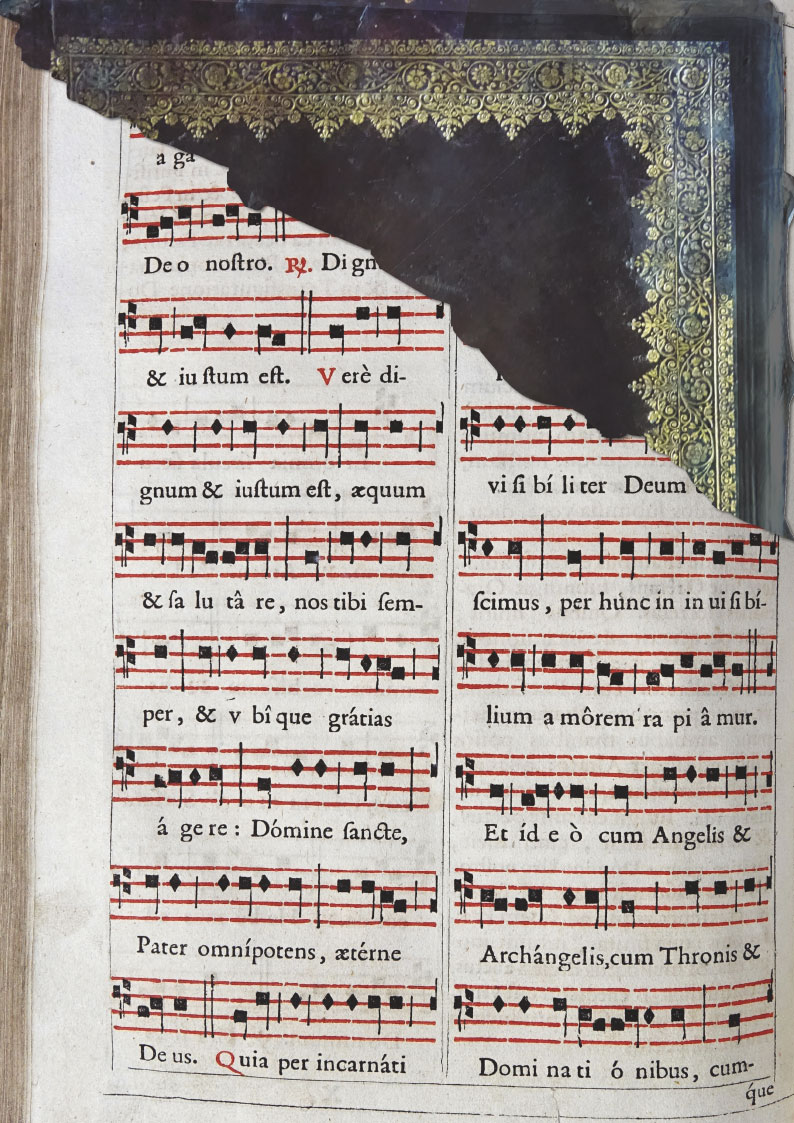 a ga
Deo noſtro. ℟. Dign
& iuſtum eſt. Verè di-
gnum & iuſtum eſt, æquum
& ſa lu tâ re, nos tibi ſem-
per, & v bî que grátias
á ge re : Dómine ſancte,
Pater omnípotens, ætérne
De us. Quia per incarnáti
vi ſi bí li ter Deum
ſcimus, per hunc in in ui ſi bí-
lium a môrem ra pi â mur.
Et íd e ò cum Angelis &
Archángelis, cum Thronis &
Domi na ti ó nibus, cum-
que